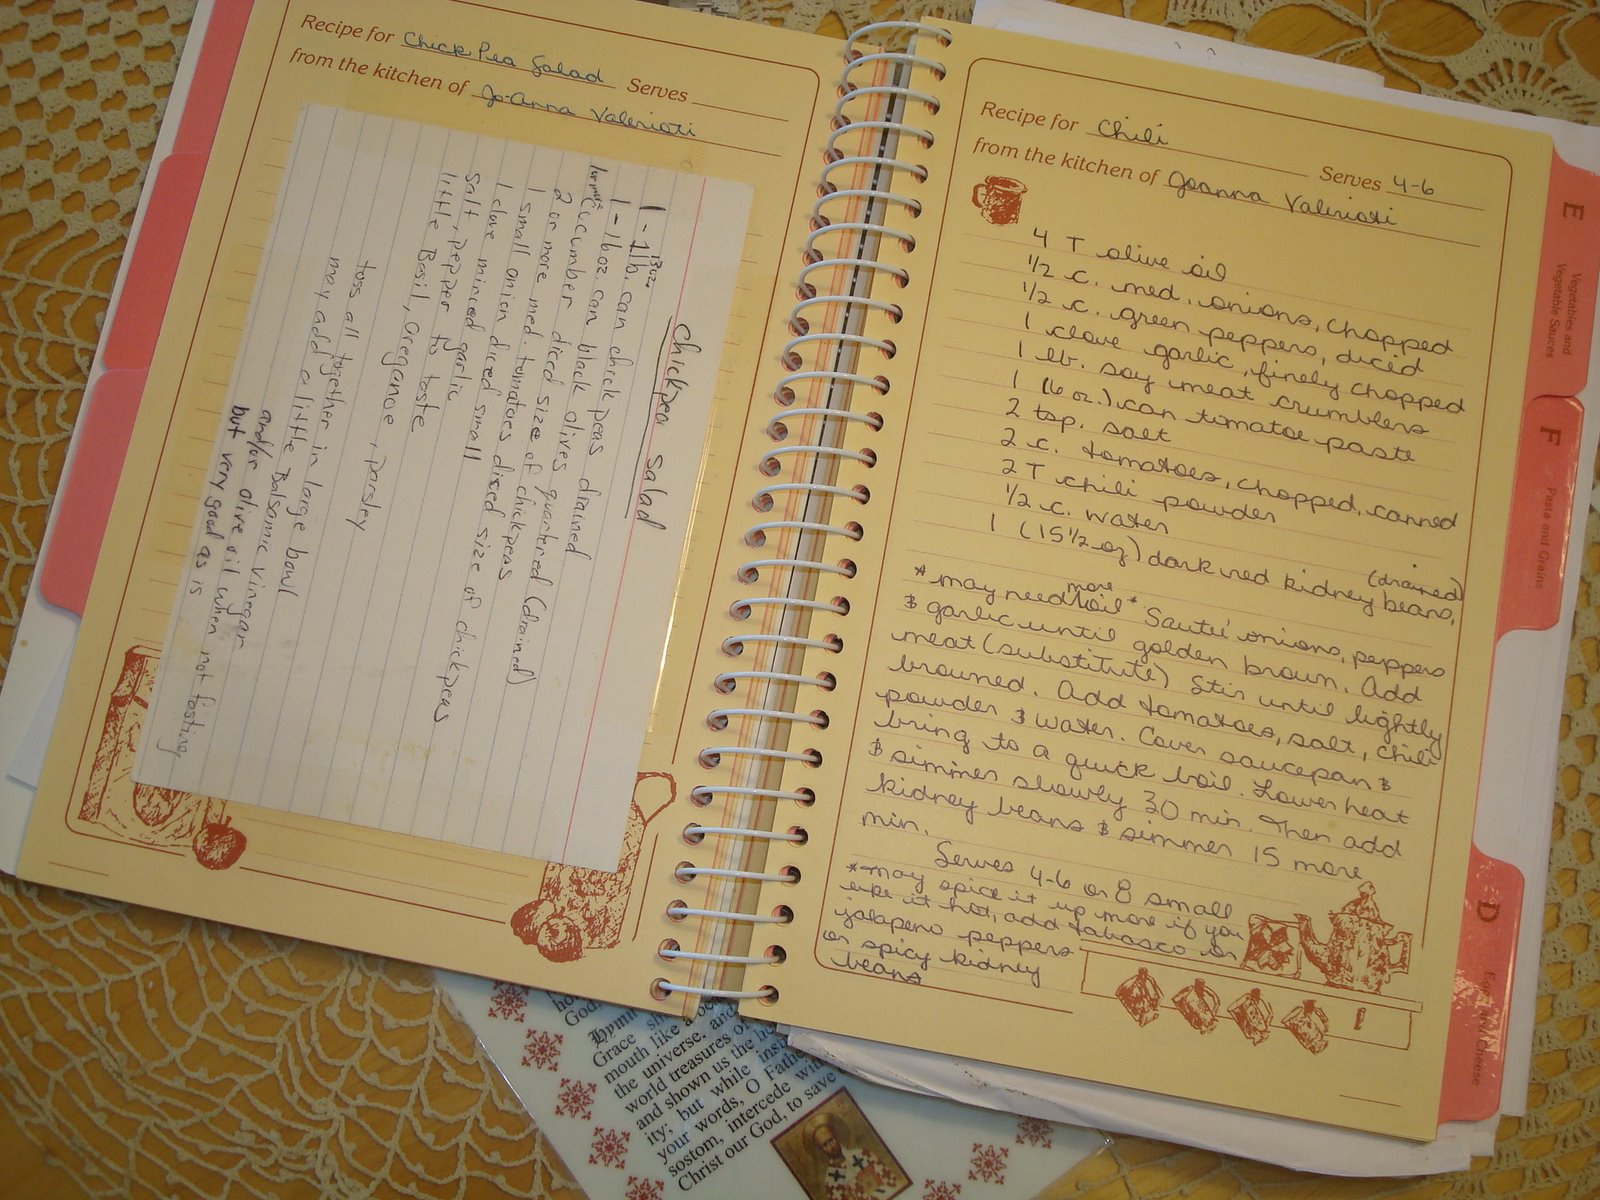 Recipe for Chick Pea Salad Serves
from the kitchen of Jo-Anna Valerioti
chickpea salad
13 oz
1 - 1 lb. can chick peas drained
1 - 16 oz. can black olives quartered (drained)
1 or more cucumber diced size of chickpeas
2 or more med. tomatoes diced size of chickpeas
1 small onion diced small
1 clove minced garlic
salt, pepper to taste
little Basil, oreganoe, parsley
toss all together in large bowl
may add a little Balsamic vinegar
and/or olive oil when not fasting
but very good as is
Recipe for Chili Serves 4-6
from the kitchen of Joanna Valerioti
4 T olive oil
1/2 c. med. onions, chopped
1/2 c. green peppers, diced
1 clove garlic, finely chopped
1 lb. soy meat crumblers
1 (6 oz.) can tomatoe paste
2 tsp. salt
2 c. tomatoes, chopped, canned
2 T chili powder
1/2 c. water
1 (15 1/2 oz) dark red kidney beans, (drained)
* may need more oil * Sauteé onions, peppers
& garlic until golden brown. Add
meat (substitute) Stir until lightly
browned. Add tomatoes, salt, chili
powder & water. Cover saucepan &
bring to a quick boil. Lower heat
& simmer slowly 30 min. Then add
kidney beans & simmer 15 more
min.
Serves 4-6 or 8 small
* may spice it up more if you
like it hot, add tabasco or
jalapeno peppers
or spicy kidney
beans
E
Vegetables and
Vegetable Sauces
F
Pasta and Grains
D
Eggs and Cheese
God
Hymn
Grace sh
mouth like a be
the universe, and
world treasures of
and shown us the he
ity; but while instr
your words, O Fathe
sostom, intercede with
Christ our God, to save